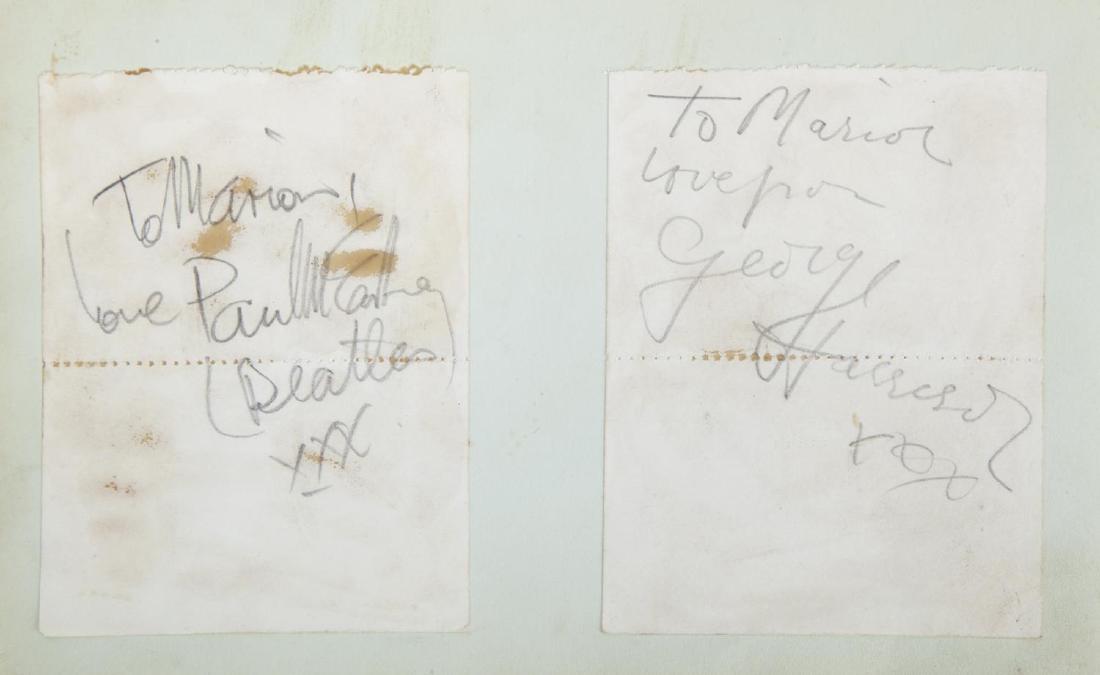 To Marion!
love Paul McCartney
(Beatles)
XXX
To Marion
love from
George
Harrison
xxx